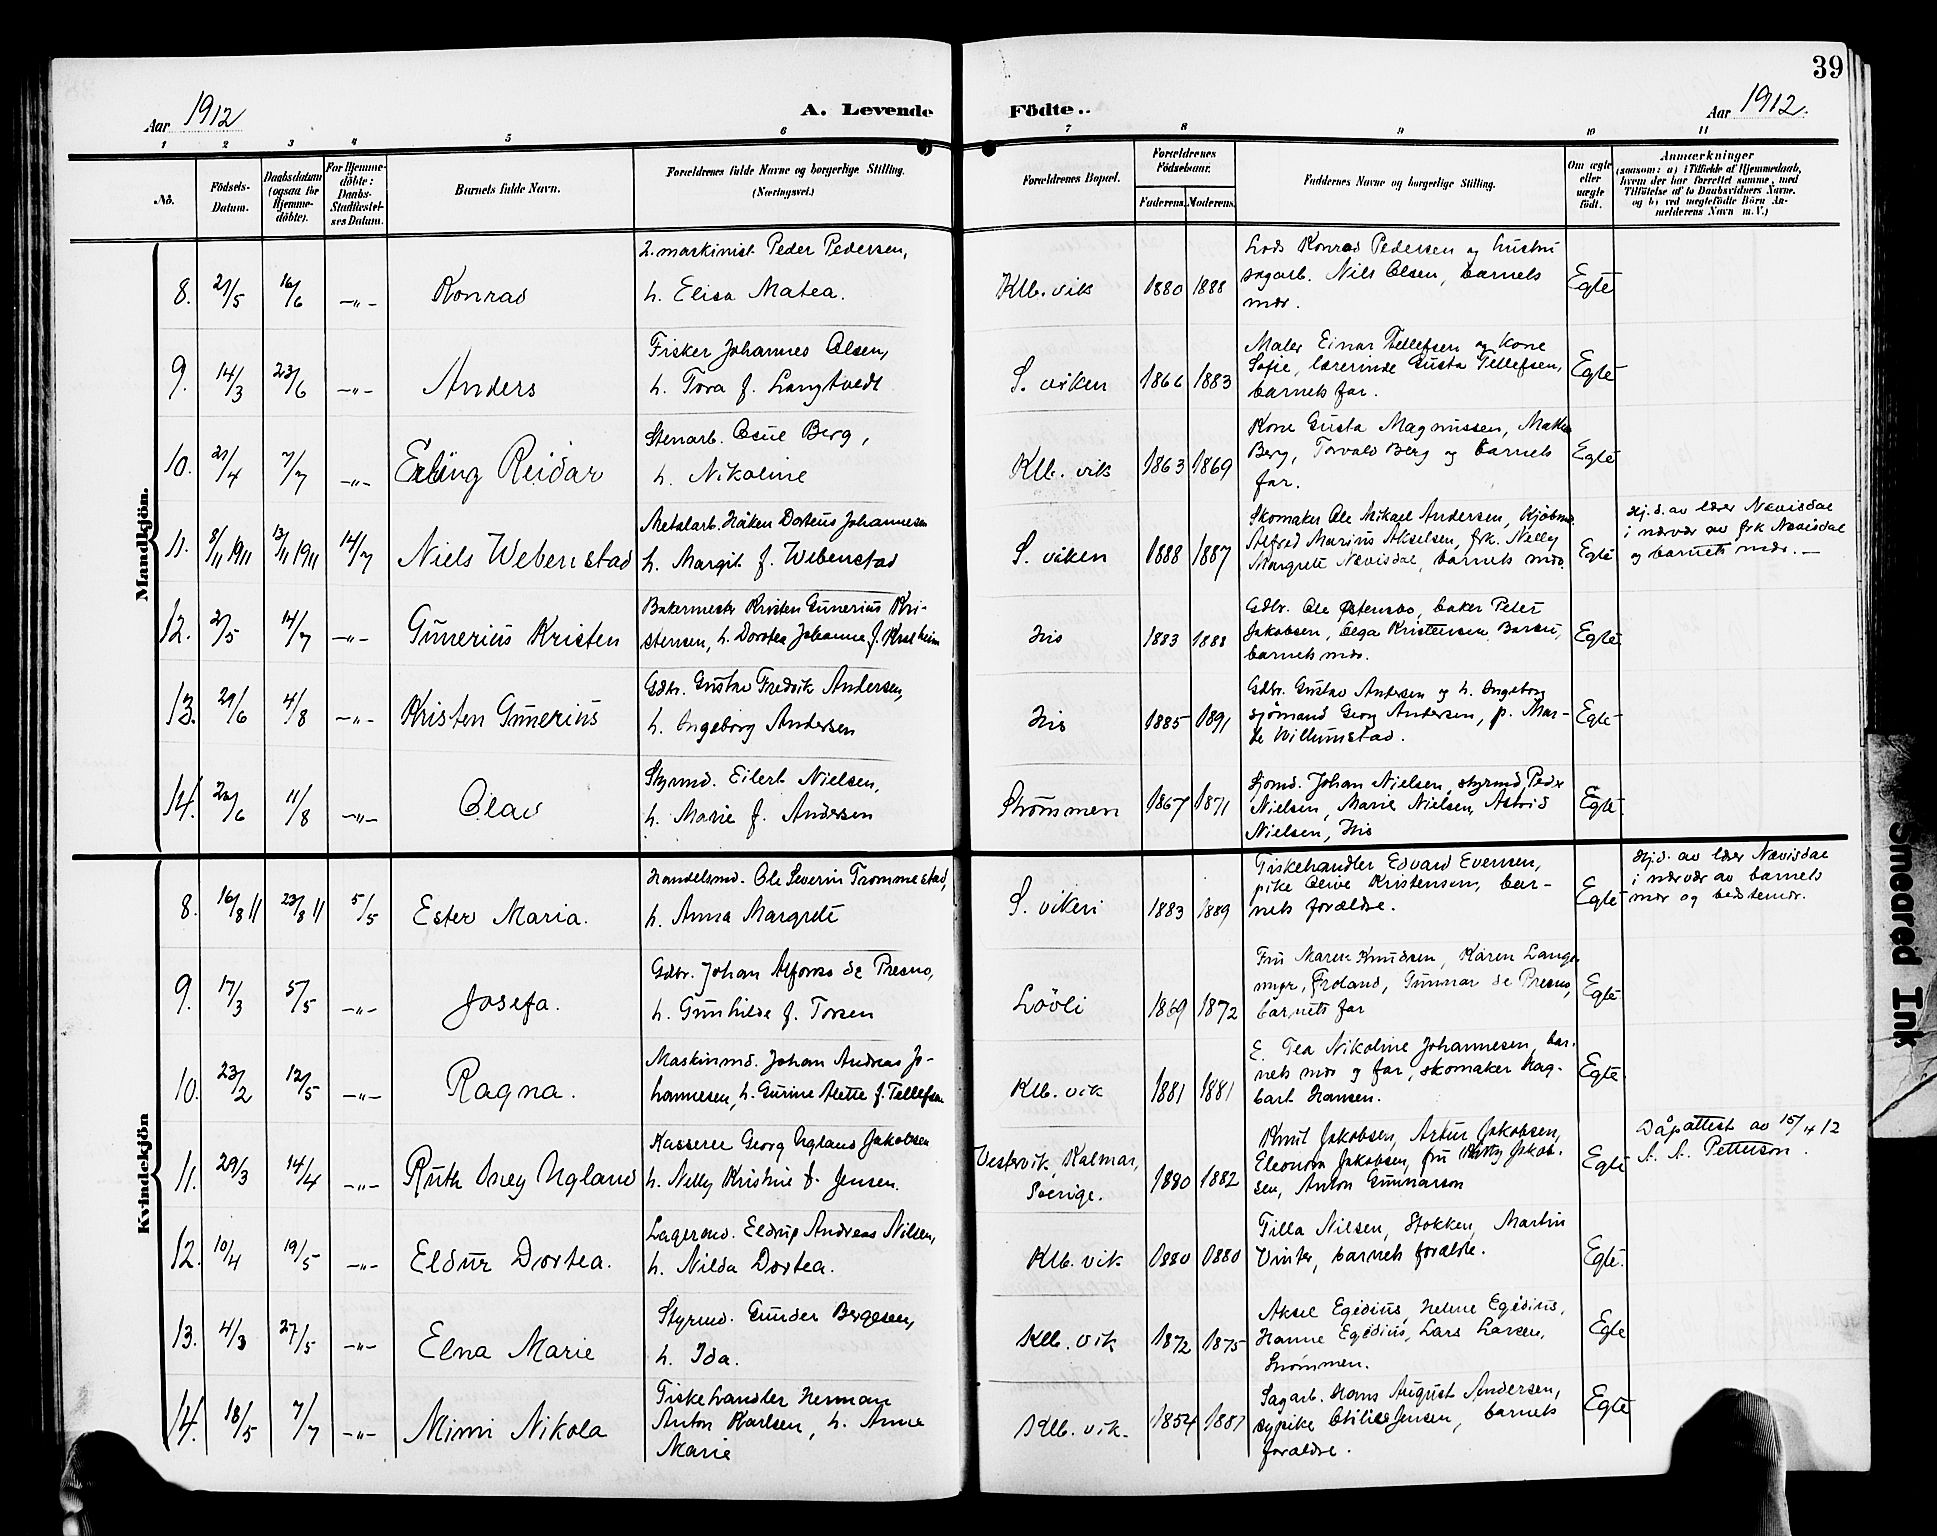 39
Aar 1912
A. Levende
Födte..
Aar 1912.
1 2 3 4 5 6 7 8 9 10 11
No.
Födsels-
Datum.
Daabsdatum
(ogsaa for
Hjemme-
döbte).
For Hjemme-
döbte:
Daabs-
Stadfæstel-
ses Datum.
Barnets fulde Navn.
Forældrenes fulde Navne og borgerlige Stilling.
(Næringsvei.)
Forældrenes Bopæl.
Forældrenes
Födselsaar.
Faderens. Moderens.
Faddernes Navne og borgerlige Stilling.
Om ægte
eller
uægte
födt.
Anmærkninger
(saasom: a) i Tilfælde af Hjemmedaab,
hvem der har forrettet samme, med
Tilföielse af to Daabsvidners Navne,
og b) ved uægtefödte Börn An-
melderens Navn m. V.)
Mandkjön.
8. 27/5 16/6 -"- Konrad
2. maskinist Peder Pedersen,
h. Elisa Matea.
Klb. vik 1880 1888
Lods Konrad Pedersen og hustru
sagarb. Nils Olsen, barnets
mor.
Egte
9. 14/3 23/6 -"- Anders
Fisker Johannes Olsen,
h. Tora f. Langtvedt
S. viken 1866 1883
Maler Einar Tellefsen og kone
Sofie, lærerinde Gusta Tellefsen,
barnets far.
Egte
10. 21/4 7/7 -"- Erling Reidar
Stenarb. Berg,
h. Nikoline
Klb. vik 1863 1869
Kone Gusta Magnussen,
Berg, Torvald Berg og barnets
far.
Egte
11. 8/11 1911 13/11 1911 14/7 Niels Webenstad
Metalarb. Håken Dorteus Johannesen
h. Margit f. Webenstad
S. viken 1888 1887
Skomaker Ole Mikael Andersen,
Alfred Marius Akselsen, frk. Nelly
Margrete Nævisdal, barnets mor.
Egte
Hj.d. av lærer Nævisdal
i nærvær av frk Nævisdal
og barnets mor. —
12. 2/5 14/7 -"- Gunerius Kristen
Bakermester Kristen Gunerius Kri-
stensen, h. Dorotea Johanne f.
His 1883 1888
Gdbr. Ole Østensbo, baker Peter
Jakobsen, Olga Kristensen,
barnets mor.
Egte
13. 29/6 4/8 -"- Kristen Gunerius
Gdbr. Gustav Fredrik Andersen,
h. Ingeborg Andersen
His 1885 1891
Gdbr. Gustav Andersen og h. Ingeborg
sjømand Georg Andersen, p. Mar-
Willumstad.
Egte
14. 23/6 11/8 -"- Olav
Styrmd. Eilert Nielsen,
h. Marie f. Andersen
Strømmen 1867 1871
Sjømd. Johan Nielsen, styrmd. Peder
Nielsen, Marie Nielsen, Astrid
Nielsen, His
Egte
Kvindekjön
8. 16/8 11 23/8 11 5/5 Ester Maria.
Handelsmd. Ole Severin Trommestad,
h. Anna Margrete
S. viken 1883 1889
Fiskehandler Edvard Evensen,
pike Olive Kristensen, bar-
nets forældre.
Egte
Hj.d. av lærer Nævisdal
i nærvær av barnets
mor og bedstemor.
9. 17/3 5/5 -"- Josefa.
Gdbr. Johan Alfonso de Presno,
h. Gunhilde f. Torsen
Løvli 1869 1872
Fru Maren Knudsen, Karen Lange-
myr, Froland, Gunnar de Presno,
barnets far
Egte
10. 23/2 12/5 -"- Ragna.
Maskinmd. Johan Andreas Jo-
hannesen, h. Gurine Alette f. Tellefsen
Klb. vik 1881 1881
E. Tea Nikoline Johannesen, bar-
nets mor og far, skomaker Hag-
bart Hansen.
Egte.
11. 29/3 14/4 -"- Ruth Ugland
Kasserer Georg Ugland Jakobsen
h. Nelly Kristine f. Jensen.
Vestervik, Kalmar,
Sverige. 1880 1882
Knut Jakobsen, Artur Jakobsen,
Eleonora Jakobsen, fru Jakob-
sen, Anton Gunnarson
Egte
Dåpattest av 15/4 12
A. A. Petterson.
12. 10/4 19/5 -"- Eldur Dortea.
Lagermd. Eldrup Andreas Nilsen,
h. Nilda Dortea.
Klb. vik 1880 1880
Tilla Nilsen, Stokken, Martin
Vinter, barnets forældre.
Egte.
13. 4/3 27/5 -"- Elna Marie
Styrmd. Gunder Bergesen,
h. Ida.
Klb. vik 1872 1875
Aksel Egidius, Helene Egidius,
Hanne Egidius, Lars Larsen,
Strømmen.
Egte
14. 18/5 7/7 -"- Mimi Nikola
Fiskehandler Herman
Anton Karlsen, h. Anne
Marie
Klb. vik. 1854 1881
Sagarb. Hans August Andersen,
sypike Jensen, barnets
forældre.
Egte
Smeared Ink